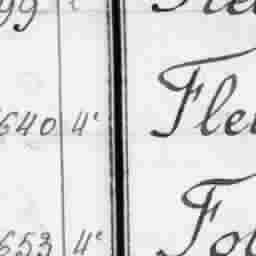 99
640 4e Fle
653 4e Fo